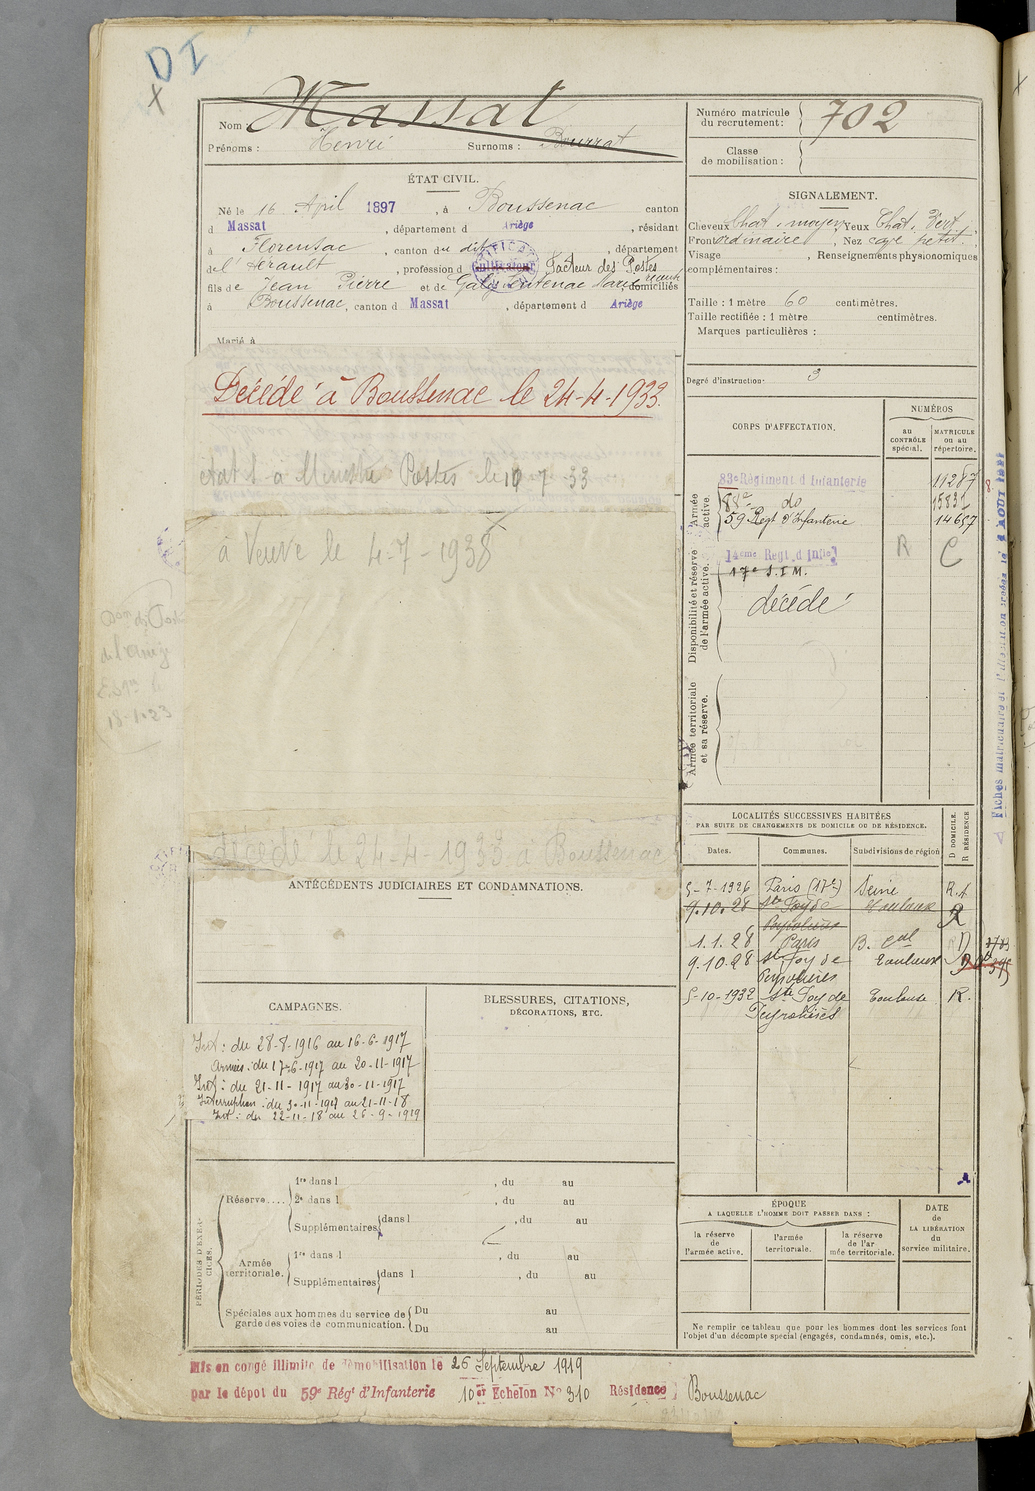 DI
X
Nom : Massat
Prénoms : Henri Surnoms : Bourrat
Numéro matricule du recrutement : 702
Classe de mobilisation :
ÉTAT CIVIL.
Né le 16 April 1897, à Boussenac canton
d Massat, département d Ariège, résidant
à Florensac, canton du dit, département
de l'Hérault, profession d cultivateur Facteur des Postes
fils de Jean Pierre et de domiciliés
à Boussenac, canton d Massat, département d Ariège
Marié à
SIGNALEMENT.
Cheveux Chat. moyen Yeux Chat. Vert
Front ordinaire, Nez cave petit
Visage , Renseignements physionomiques
complémentaires :
Taille : 1 mètre 60 centimètres.
Taille rectifiée : 1 mètre centimètres.
Marques particulières :
Degré d'instruction 3
Décédé à Boussenac le 24-4-1933.
état s à Ministre Postes le 10 7-33
à Veuve le 4-7-1938
décédé le 24-4-1933 à Boussenac
CORPS D'AFFECTATION.
NUMÉROS
au CONTRÔLE spécial.
MATRICULE ou au répertoire.
Armée active.
83e Régiment d Infanterie 11287
88e do 15831
59 Regt d'Infanterie 14657
Disponibilité et réserve de l'armée active.
14eme Regt d Infie R C
17e S.I.M.
décédé
Armée territoriale et sa réserve.
LOCALITÉS SUCCESSIVES HABITÉES
PAR SUITE DE CHANGEMENTS DE DOMICILE OU DE RÉSIDENCE.
Dates. Communes. Subdivisions de région D DOMICILE. R RÉSIDENCE
5-7-1926 Paris (17e) Seine R.
9.10.28 Ste Foy de Toulouse R
Peyrolières
1.1.28 Paris B. cal D
9.10.28 Ste Foy de Toulouse
Peyrolières
5-10-1932 Ste Foy de Toulouse R.
Peyrolières
ANTÉCÉDENTS JUDICIAIRES ET CONDAMNATIONS.
CAMPAGNES.
Int : du 28-8-1916 au 16-6-1917
Armées : du 17-6-1917 au 20-11-1917
Int : du 21-11-1917 au 30-11-1917
Interruption : du 30-11-1917 au 21-11-18
Int : du 22-11-18 au 26-9-1919
BLESSURES, CITATIONS,
DÉCORATIONS, ETC.
PÉRIODES D'EXERCICES.
Réserve.... 1re dans l , du au
2e dans l , du au
Supplémentaires dans l , du au
Armée territoriale. 1re dans l , du au
Supplémentaires dans l , du au
Spéciales aux hommes du service de garde des voies de communication. Du au
Du au
ÉPOQUE
A LAQUELLE L'HOMME DOIT PASSER DANS :
la réserve de l'armée active.
l'armée territoriale.
la réserve de l'armée territoriale.
DATE de LA LIBÉRATION du service militaire.
Ne remplir ce tableau que pour les hommes dont les services font
l'objet d'un décompte spécial (engagés, condamnés, omis, etc.).
Mis en congé illimité de démobilisation le 26 Septembre 1919
par le dépôt du 59e Régt d'Infanterie 10er Echelon No 310 Résidence Boussenac